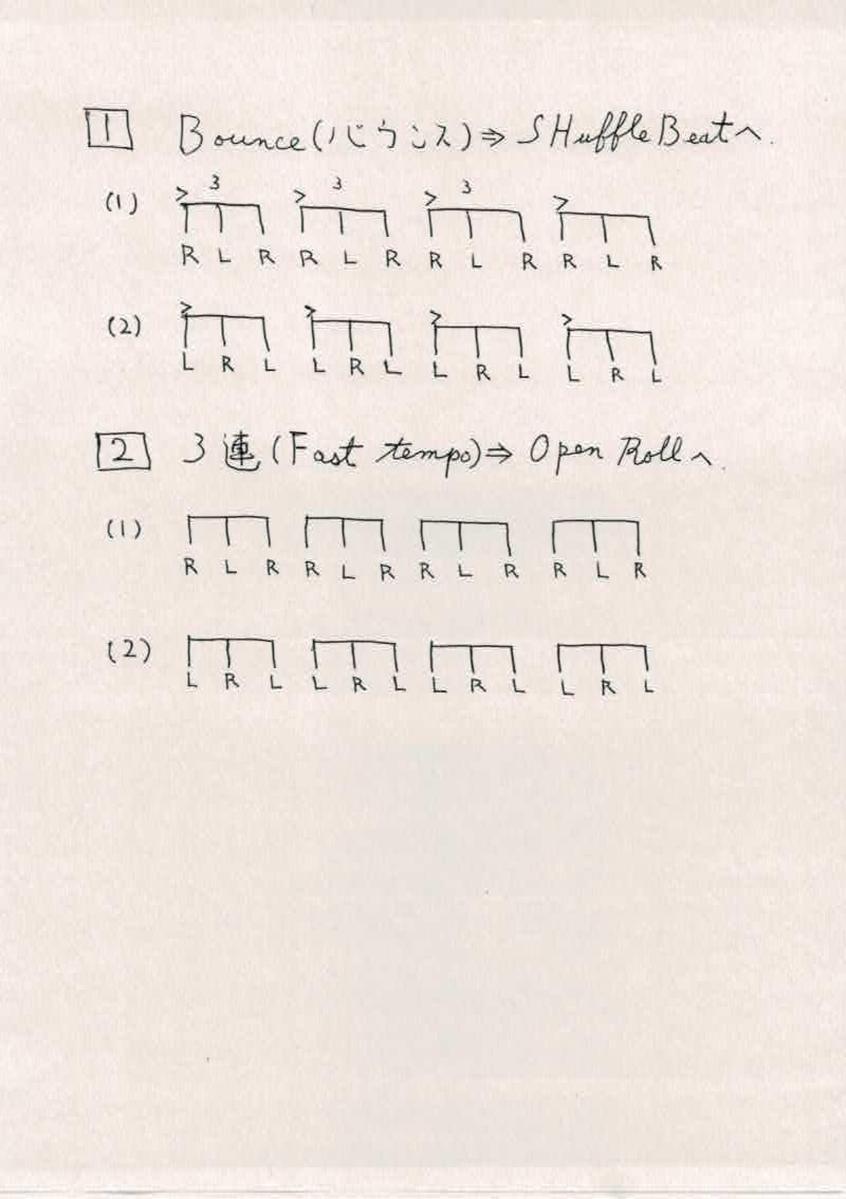 1 Bounce(バウンス)⇒SHuffle Beatへ.
(1) > 3 > 3 > 3 >
R L R R L R R L R R L R
(2) > > > >
L R L L R L L R L L R L
2 3連(Fast tempo)⇒Open Rollへ.
(1)
R L R R L R R L R R L R
(2)
L R L L R L L R L L R L